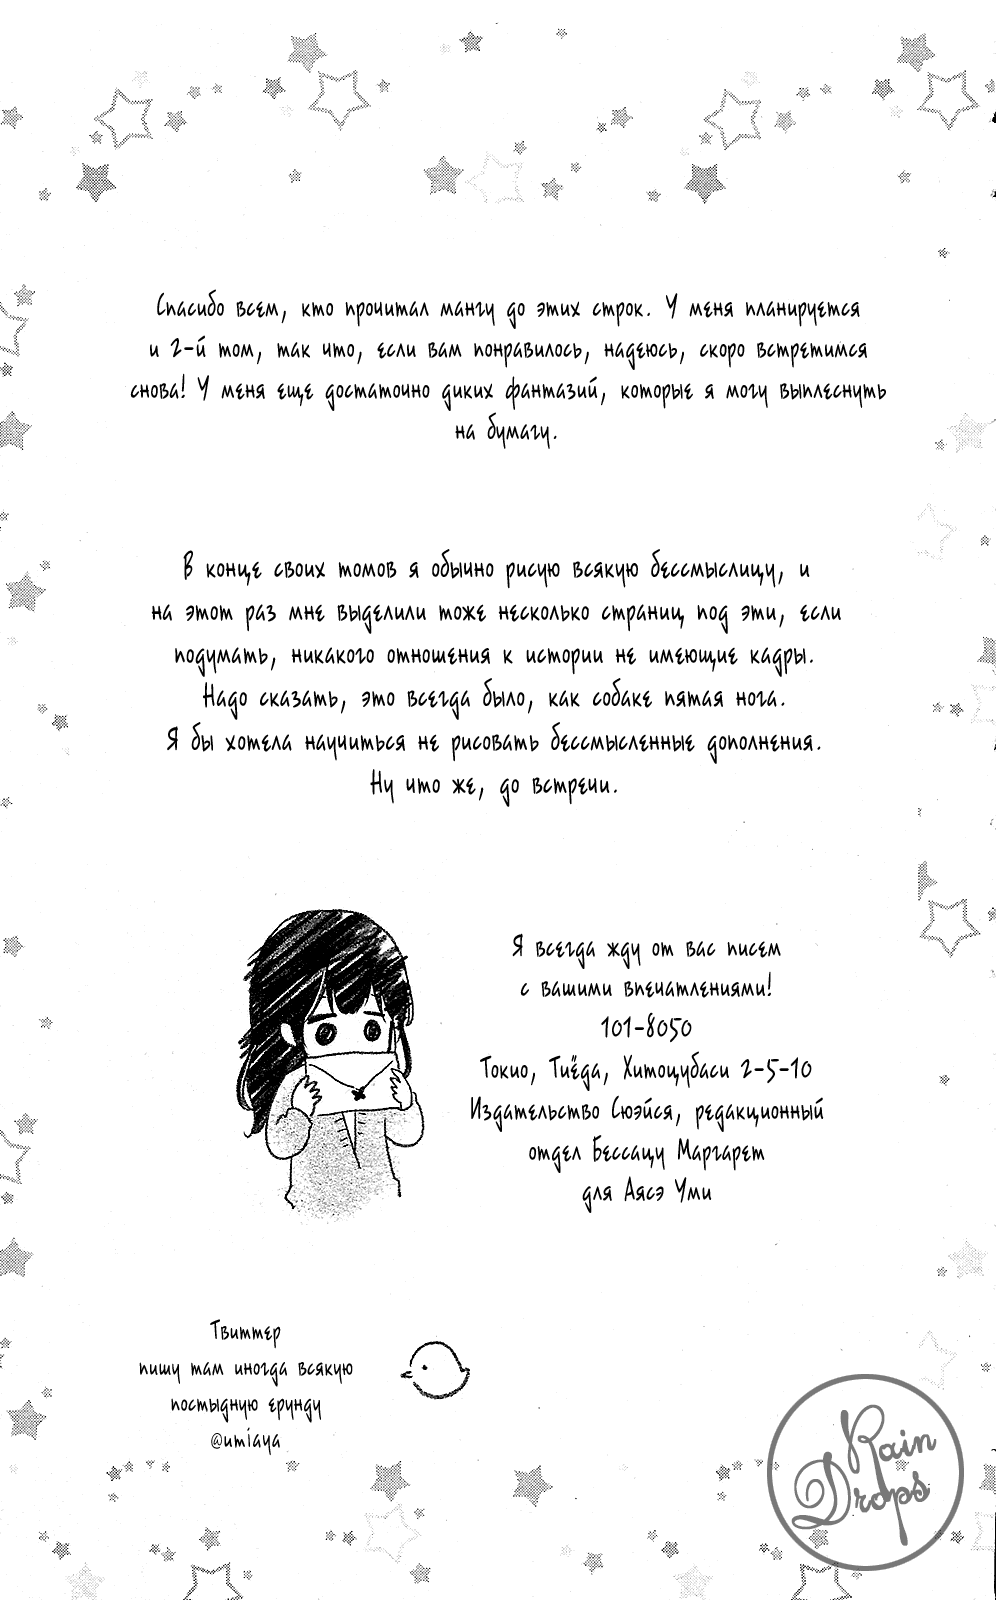 Спасибо всем, кто прочитал мангу до этих строк. У меня планируется
и 2-й том, так что, если вам понравилось, надеюсь, скоро встретимся
снова! У меня еще достаточно диких фантазий, которые я могу выплеснуть
на бумагу.
В конце своих томов я обычно рисую всякую бессмыслицу, и
на этот раз мне выделили тоже несколько страниц под эти, если
подумать, никакого отношения к истории не имеющие кадры.
Надо сказать, это всегда было, как собаке пятая нога.
Я бы хотела научиться не рисовать бессмысленные дополнения.
Ну что же, до встречи.
Я всегда жду от вас писем
с вашими впечатлениями!
101-8050
Токио, Тиёда, Хитоцубаси 2-5-10
Издательство Сюэйся, редакционный
отдел Бессацу Маргарет
для Аясэ Уми
Твиттер
пишу там иногда всякую
постыдную ерунду
@umiaya
Rain
Drops